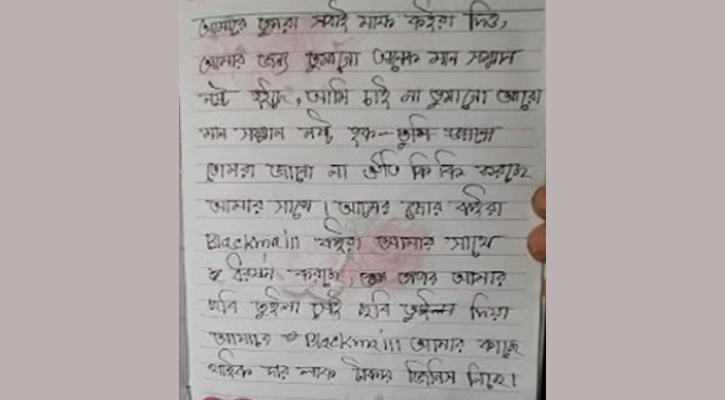 আমারে তুমরা সবাই মাফ কইরা দিও,
আমার জন্য তুমাগো অনেক মান সম্মান
নষ্ট হইছে, আমি চাই না তুমাগো আরো
মান সম্মান নষ্ট হক – তুমি
তোমরা জানো না কি কি করছে
আমার সাথে। জোর কইরা
Blackmaill কইরা আমার সাথে
করছে, তারপর আমার
ছবি তুইলা সেই ছবি তুইলা দিয়া
আমারে Blackmaill আমার কাছে
থাইক চার লাক টাকার জিনিস নিছে।